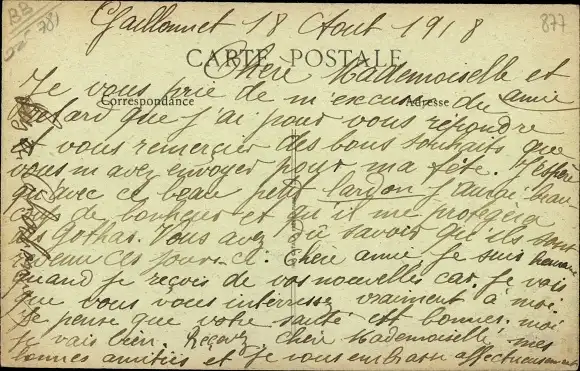 Gaillonnet 18 Aout 1918
877
BB
787
CARTE POSTALE
Chère Mademoiselle et
Correspondance
Adresse
amie
Je vous prie de m'excuser du
retard que j'ai pour vous répondre
et vous remercier des bons souhaits que
vous m'avez envoyer pour ma fête. J'espère
qu'avec ce beau petit j'aurai beau
de bonheur et qu'il me protégera
des gothas. Vous avez dû savoir qu'ils sont
revenu ces jours-ci. Chère amie, je suis heureuse
quand je reçois de vos nouvelles car je vois
que vous vous intéressez vraiment a moi.
Je pense que votre santé est bonne. moi
je vais bien. Recevez, chère Mademoiselle, mes
bonnes amitiés et je vous embrasse affectueusement